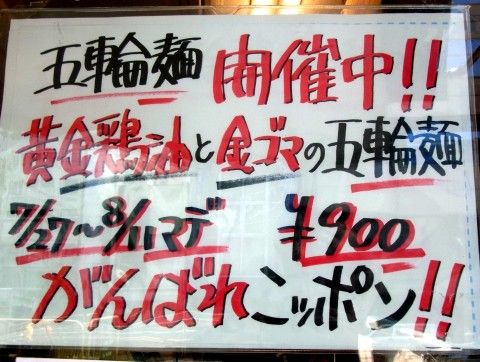 五輪麺 開催中!!
黄金鶏油と金ゴマの五輪麺
7/27〜8/11マデ ¥900
がんばれニッポン!!